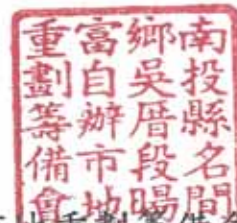 南投縣名間
鄉吳厝段暘
富自辦市地
重劃籌備會